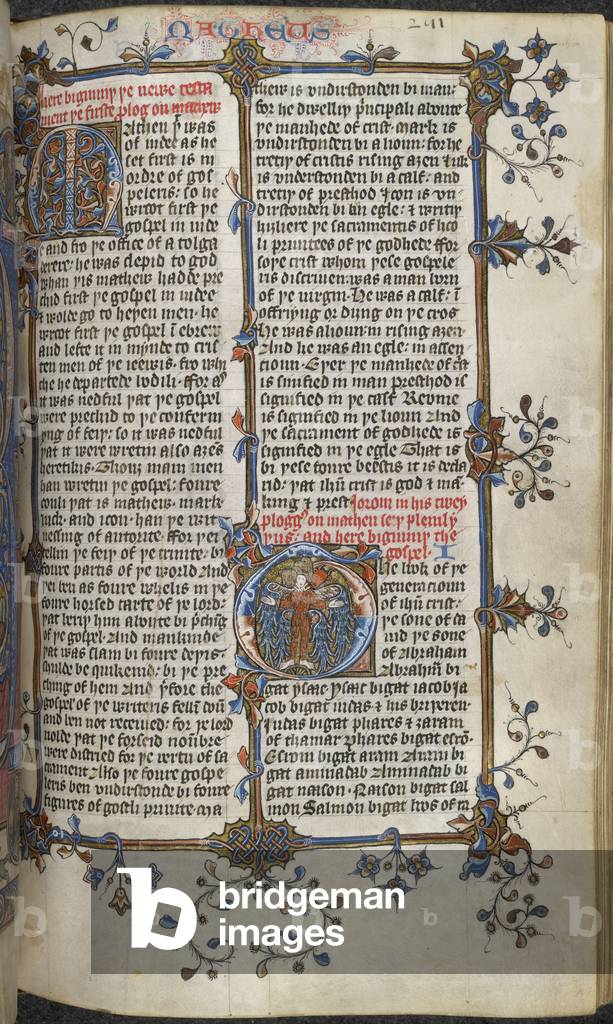 Matheus
241
here biginniy ye newe testa
ment ye firste plog on mathew
Mathen yt was
of iudee as he
set first is in
ordre of gos
pelers: so he
wroot first ye
gospel in iude
e and fro ye office of a tolga
derere: he was clepid to god
whan yis mathew hadde pre
chid first ye gospel in iudee
& wolde go to heyen men: he
wroot first ye gospel ī ebrew
and lefte it in mynde to cris
ten men of ye iewis. fro whi
che he departede bodili. ffor as
it was nedful yat ye gospel
were prechid to ye conferm
yng of feiy: so it was nedful
yat it were writin also azēs
heretikis. Thouz mani men
han writin ye gospel: foure
oonli yat is mathew. mark
luck. and ioon. han ye wit
nessing of autorite. ffor yei
tellin ye feiy of ye trinite. bi
foure partis of ye world And
yei ben as foure whelis in ye
foure horsed carte of ye lord:
yat beriy him aboute bi prching
of ye gospel. And mankinde
yat was slain bi foure deyis.
schulde be quikenid: bi ye pre
ching of hem And yfore the
gospels of ye writeris fellē doū
and ben not received: for ye lord
nolde yat ye forseid noūbre
were distried for ye vertu of sa
crament. Also ye foure gospe
leris ben vndirstonde bi foure
figures of gostli priuite. ma
thew is vndirstonden bi man:
for he dwelliy principali aboute
ye manhede of crist. mark is
vndirstonden bi a lioun: for he
tretiy of cristis rising azen. luk
is vnderstonden bi a calf: and
tretiy of presthod. Ioon is vn
dirstonden bi an egle: & writiy
hiziliere ye sacramentis of hoo
li priuitees of ye godhede. ffor
soye crist whom yese gospele
ris discriuen. was a man born
of ye virgin. He was a calf: ī
offryng or diyng on ye cros
He was a lioun: in rising azen.
And he was an egle: in ascen
cioun. Eyer ye manhede of crist
is signified in man presthod is
signified in ye calf. Rewme
is signified in ye lioun And
ye sacrament of godhede is
signified in ye egle. That is
bi yese foure beestis it is decla
rid: yat ihū crist is god & ma
king & prest Jerom in his twey
ploggs on mathen sey plenily
yus. and here biginniy the
gospel. I
The book of ye
generacioun
of ihū crist:
ye sone of da
uid ye sone
of Abraham
Abrahām bi
gat ysaac ysaac bigat iacob ia
cob bigat iudas & his briyeren
iudas bigat phares & zaram
of thamar phares bigat esrō.
Esrom bigat aram Aram bi
gat aminadab Aminadab bi
gat naason. Naason bigat sal
mon Salmon bigat boos of ra
b bridgeman
images